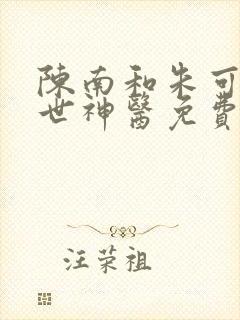 陳南和朱可
世神醫免費
汪荣祖